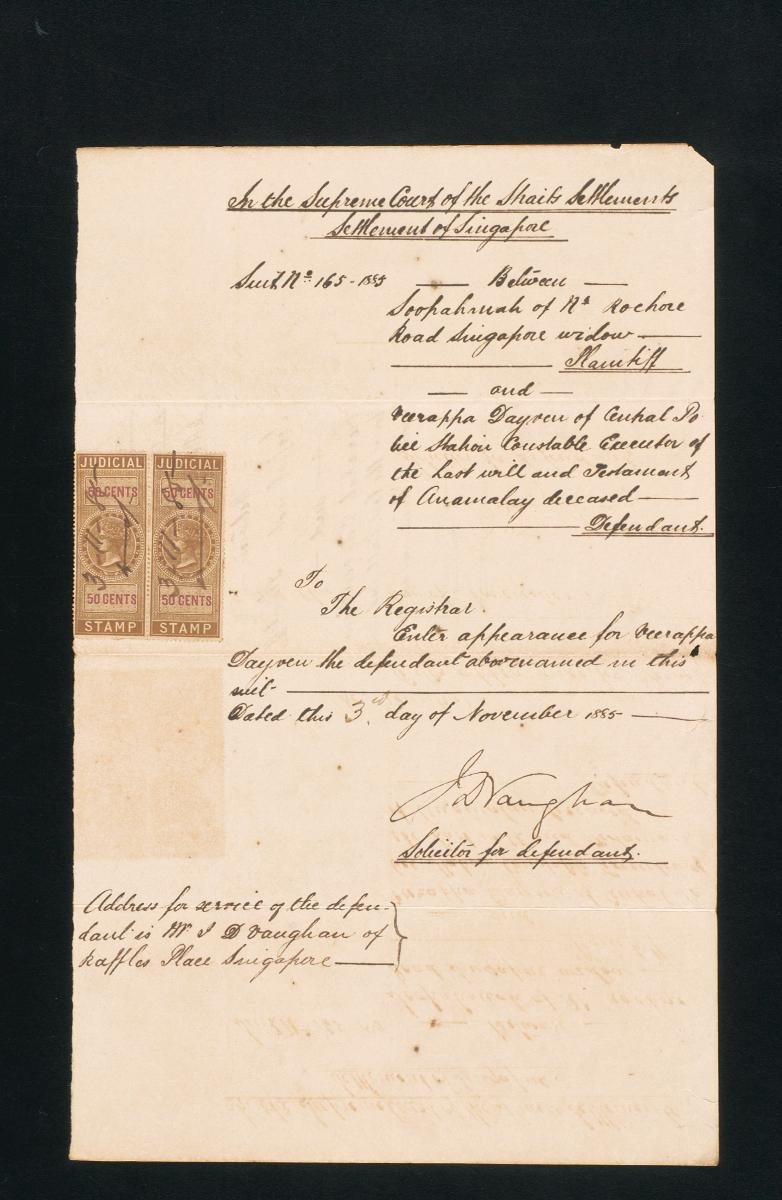 In the Supreme Court of the Straits Settlements
Settlement of Singapore
Suit No. 165 - 1885
Between
Soopahmah of No. Rochore
Road Singapore widow
Plaintiff
and
Veerappa Dayven of Central Po
lice Station Constable Executor of
the Last will and Testament
of Anamalay deceased
Defendant.
JUDICIAL JUDICIAL
50 CENTS 50 CENTS
3-11-85 3-11-85
50 CENTS 50 CENTS
STAMP STAMP
To
The Registrar.
Enter appearance for Veerappa
Dayven the defendant abovenamed in this
suit
Dated this 3rd. day of November 1885
J D Vaughan
Solicitor for defendant.
Address for service of the defen-
dant is Mr J D Vaughan of
Raffles Place Singapore